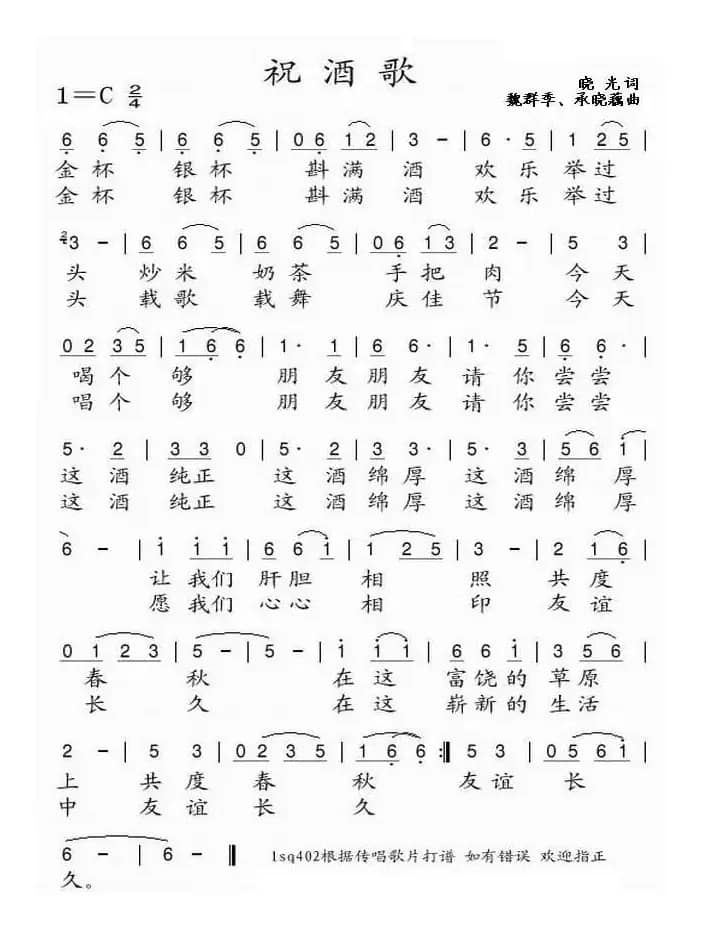 祝酒歌
1=C 2/4
晓光词
魏群季、承晓藕曲
6 6 5 | 6 6 5 | 0 6 1 2 | 3 - | 6· 5 | 1 2 5 |
金杯 银杯 斟满 酒 欢乐 举过
金杯 银杯 斟满 酒 欢乐 举过
2/4 3 - | 6 6 5 | 6 6 5 | 0 6 1 3 | 2 - | 5 3 |
头 炒米 奶茶 手把 肉 今天
头 载歌 载舞 庆佳 节 今天
0 2 3 5 | 1 6 6 | 1· 1 | 6 6· | 1· 5 | 6 6· |
喝个 够 朋友 朋友 请你 尝尝
唱个 够 朋友 朋友 请你 尝尝
5· 2 | 3 3 0 | 5· 2 | 3 3· | 5· 3 | 5 6 1 |
这酒 纯正 这酒 绵厚 这酒 绵厚
这酒 纯正 这酒 绵厚 这酒 绵厚
6 - | 1 1 1 | 6 6 1 | 1 2 5 | 3 - | 2 1 6 |
让 我们 肝胆 相 照 共度
愿 我们 心心 相 印 友谊
0 1 2 3 | 5 - | 5 - | 1 1 1 | 6 6 1 | 3 5 6 |
春 秋 在这 富饶的 草原
长 久 在这 崭新的 生活
2 - | 5 3 | 0 2 3 5 | 1 6 6 :‖ 5 3 | 0 5 6 1 |
上 共度 春 秋 友谊 长
中 友谊 长 久
6 - | 6 - ‖ 1sq402根据传唱歌片打谱 如有错误 欢迎指正
久。